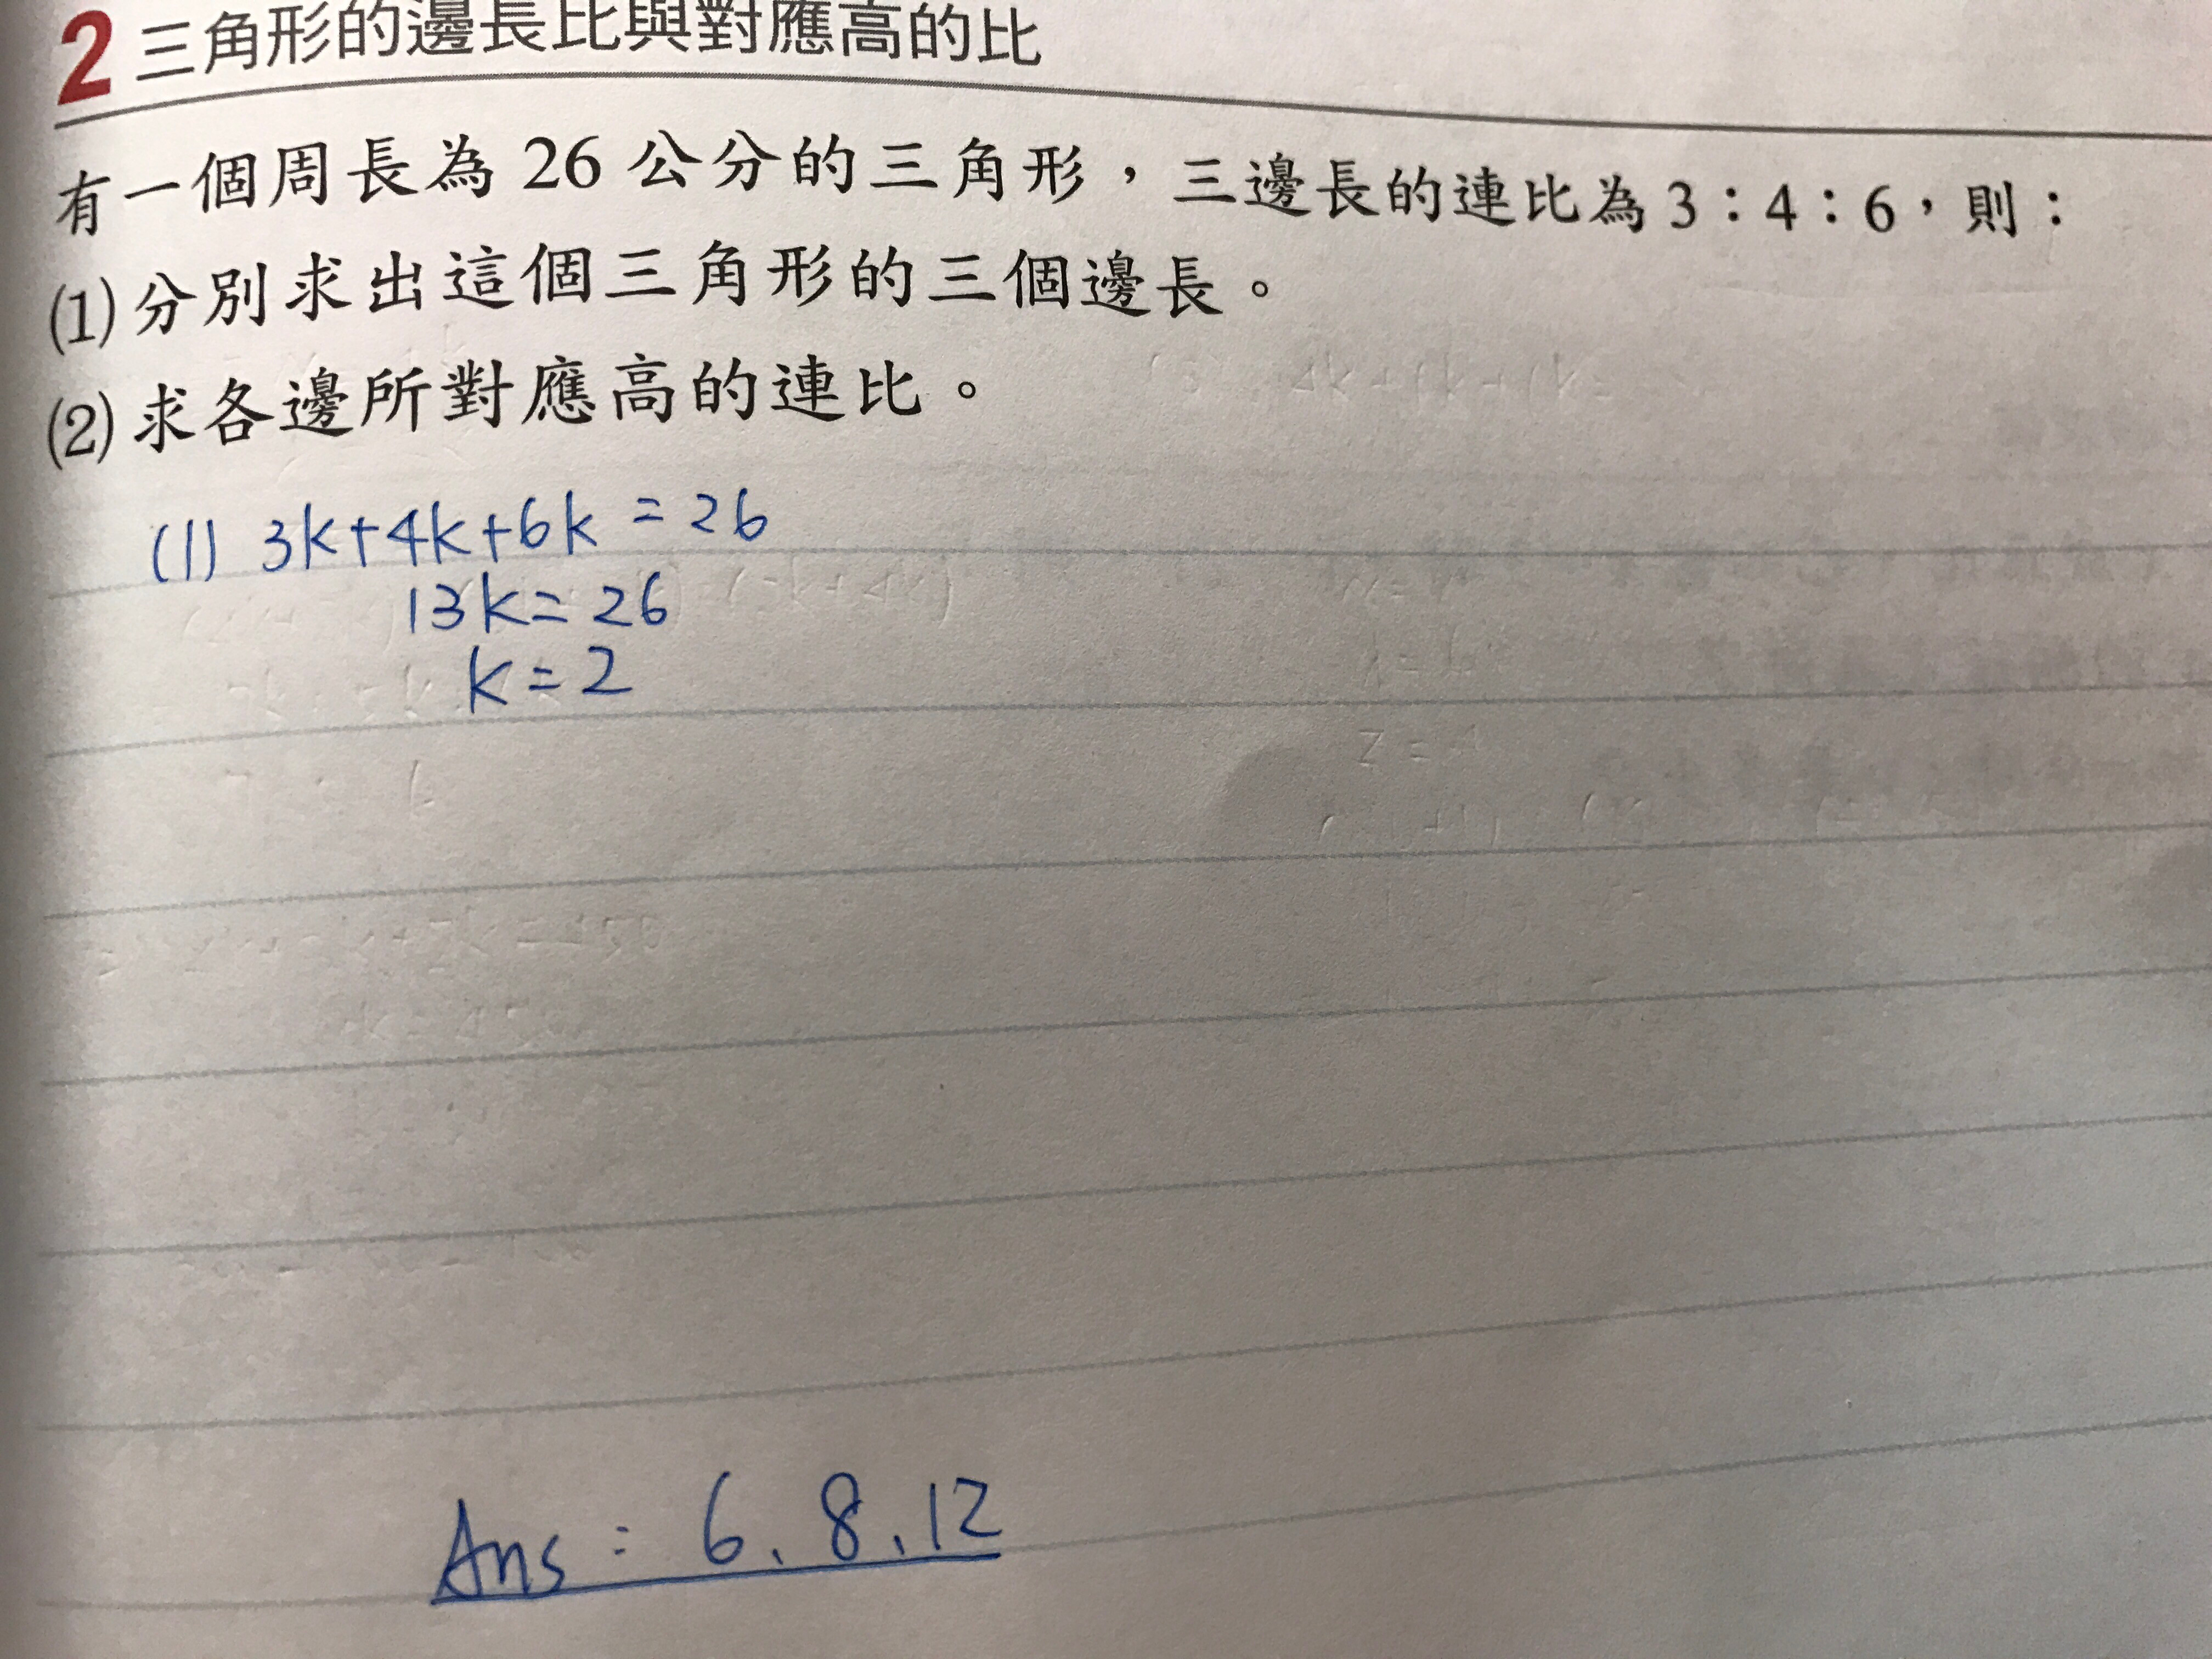 2 三角形的邊長比與對應高的比
有一個周長為 26 公分的三角形，三邊長的連比為 3：4：6，則：
(1) 分別求出這個三角形的三個邊長。
(2) 求各邊所對應高的連比。
(1) 3k+4k+6k = 26
13k = 26
k = 2
Ans : 6、8、12